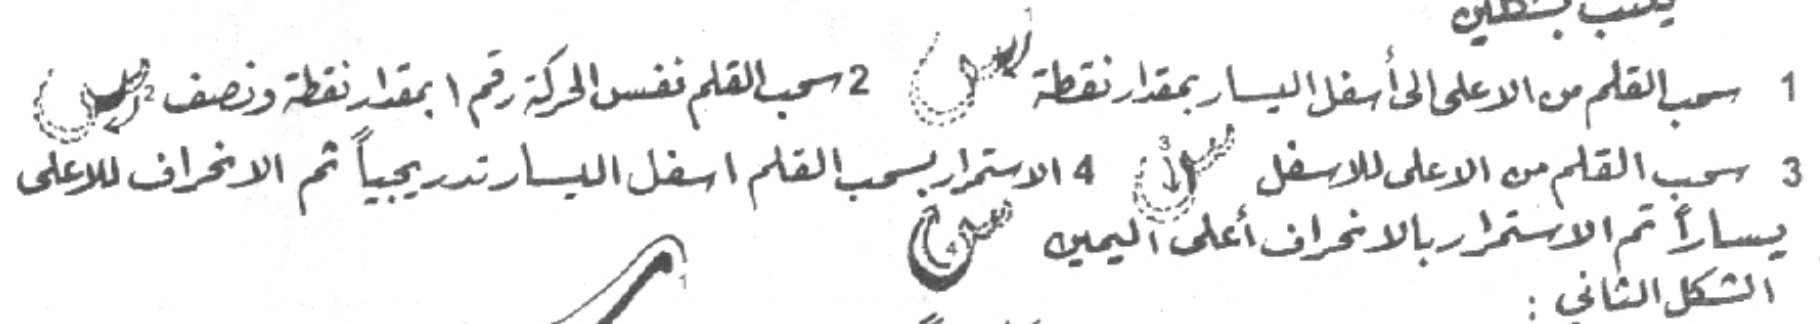 يكتب بشكلين
1 سحب القلم من الاعلى الى أسفل اليسار بمقدار نقطة 2 سحب القلم نفس الحركة رقم ١ بمقدار نقطة ونصف
3 سحب القلم من الاعلى للاسفل 4 الاستمرار بسحب القلم اسفل اليسار تدريجياً ثم الانحراف للاعلى
يساراً ثم الاستمرار بالانحراف أعلى اليمين
الشكل الثاني :